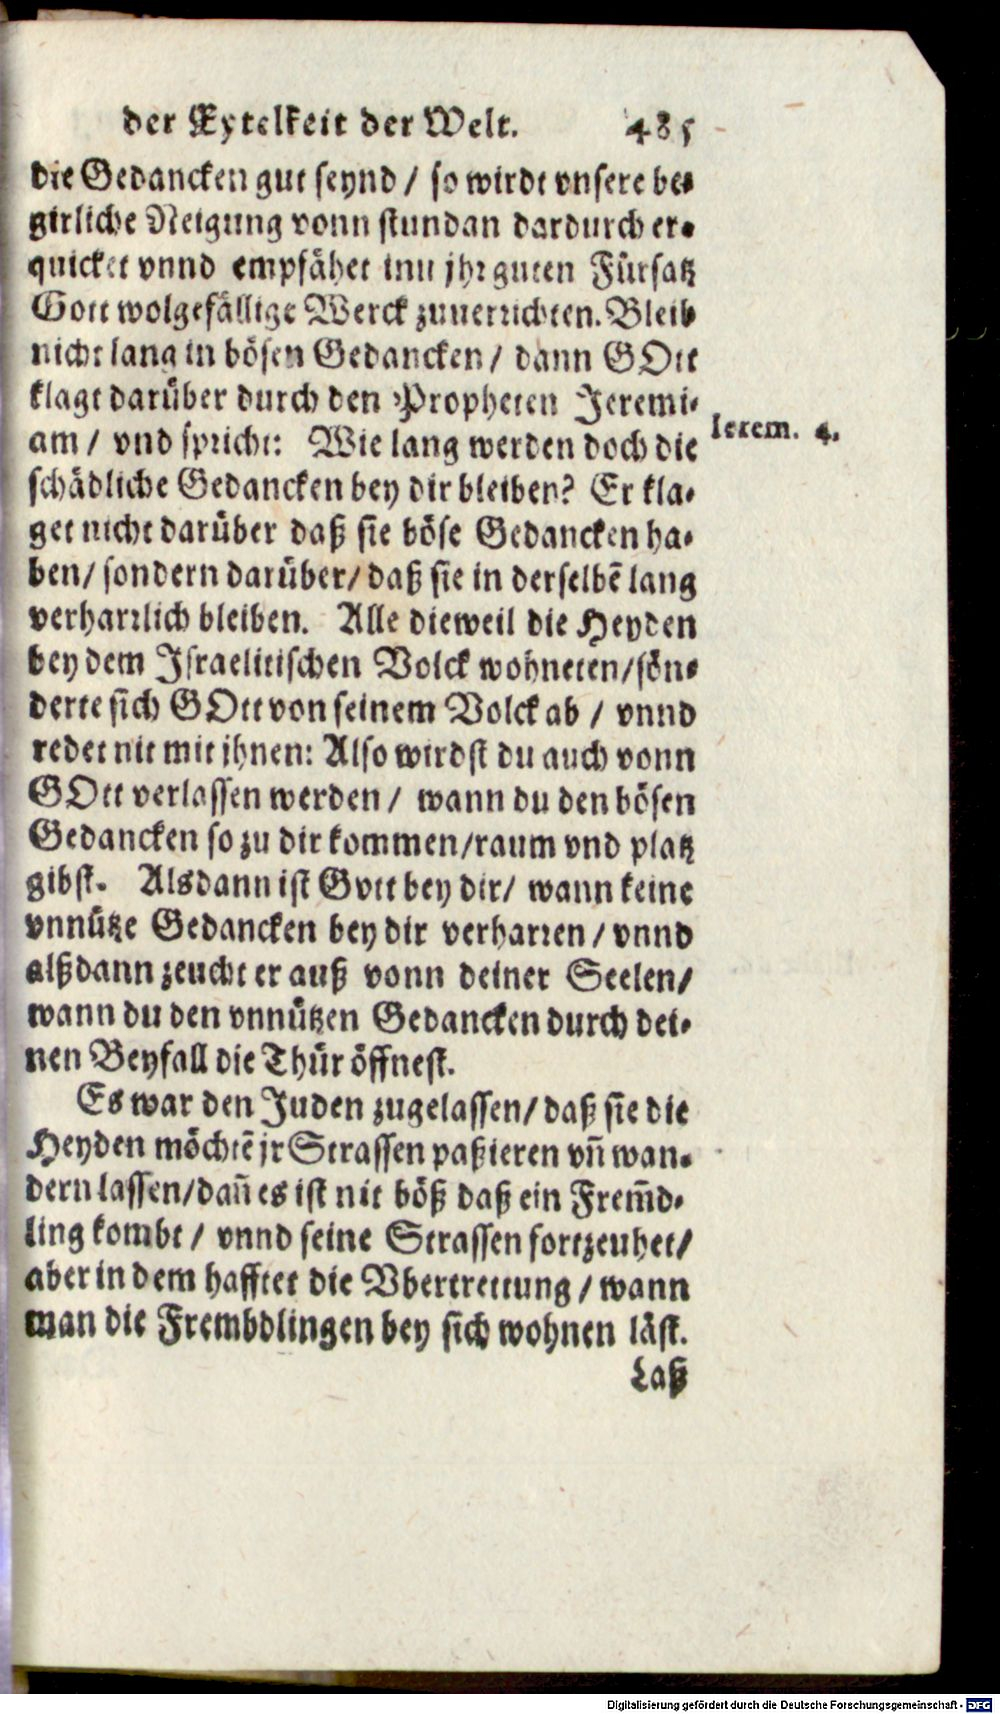 der Eytelkeit der Welt. 485
die Gedancken gut seynd / so wirdt vnsere be-
girliche Neigung vonn stundan dardurch er-
quicket vnnd empfähet inn jhr guten Fürsatz
Gott wolgefällige Werck zuuerrichten. Bleib
nicht lang in bösen Gedancken / dann GOtt
klagt darüber durch den Propheten Jeremi-
am / vnd spricht: Wie lang werden doch die
Ierem. 4.
schädliche Gedancken bey dir bleiben? Er kla-
get nicht darüber daß sie böse Gedancken ha-
ben / sondern darüber / daß sie in derselbē lang
verharrlich bleiben. Alle dieweil die Heyden
bey dem Israelitischen Volck wohneten / sön-
derte sich GOtt von seinem Volck ab / vnnd
redet nit mit jhnen: Also wirdst du auch vonn
GOtt verlassen werden / wann du den bösen
Gedancken so zu dir kommen / raum vnd platz
gibst. Alsdann ist Gott bey dir / wann keine
vnnütze Gedancken bey dir verharren / vnnd
alßdann zeucht er auß vonn deiner Seelen /
wann du den vnnützen Gedancken durch dei-
nen Beyfall die Thür öffnest.
Es war den Juden zugelassen / daß sie die
Heyden möchtē jr Strassen paßieren vn̄ wan-
dern lassen / dan̄ es ist nit böß daß ein Frem̄d-
ling kombt / vnnd seine Strassen fortzeuhet /
aber in dem hafftet die Vbertrettung / wann
man die Frembdlingen bey sich wohnen läst.
Laß
Digitalisierung gefördert durch die Deutsche Forschungsgemeinschaft - DFG